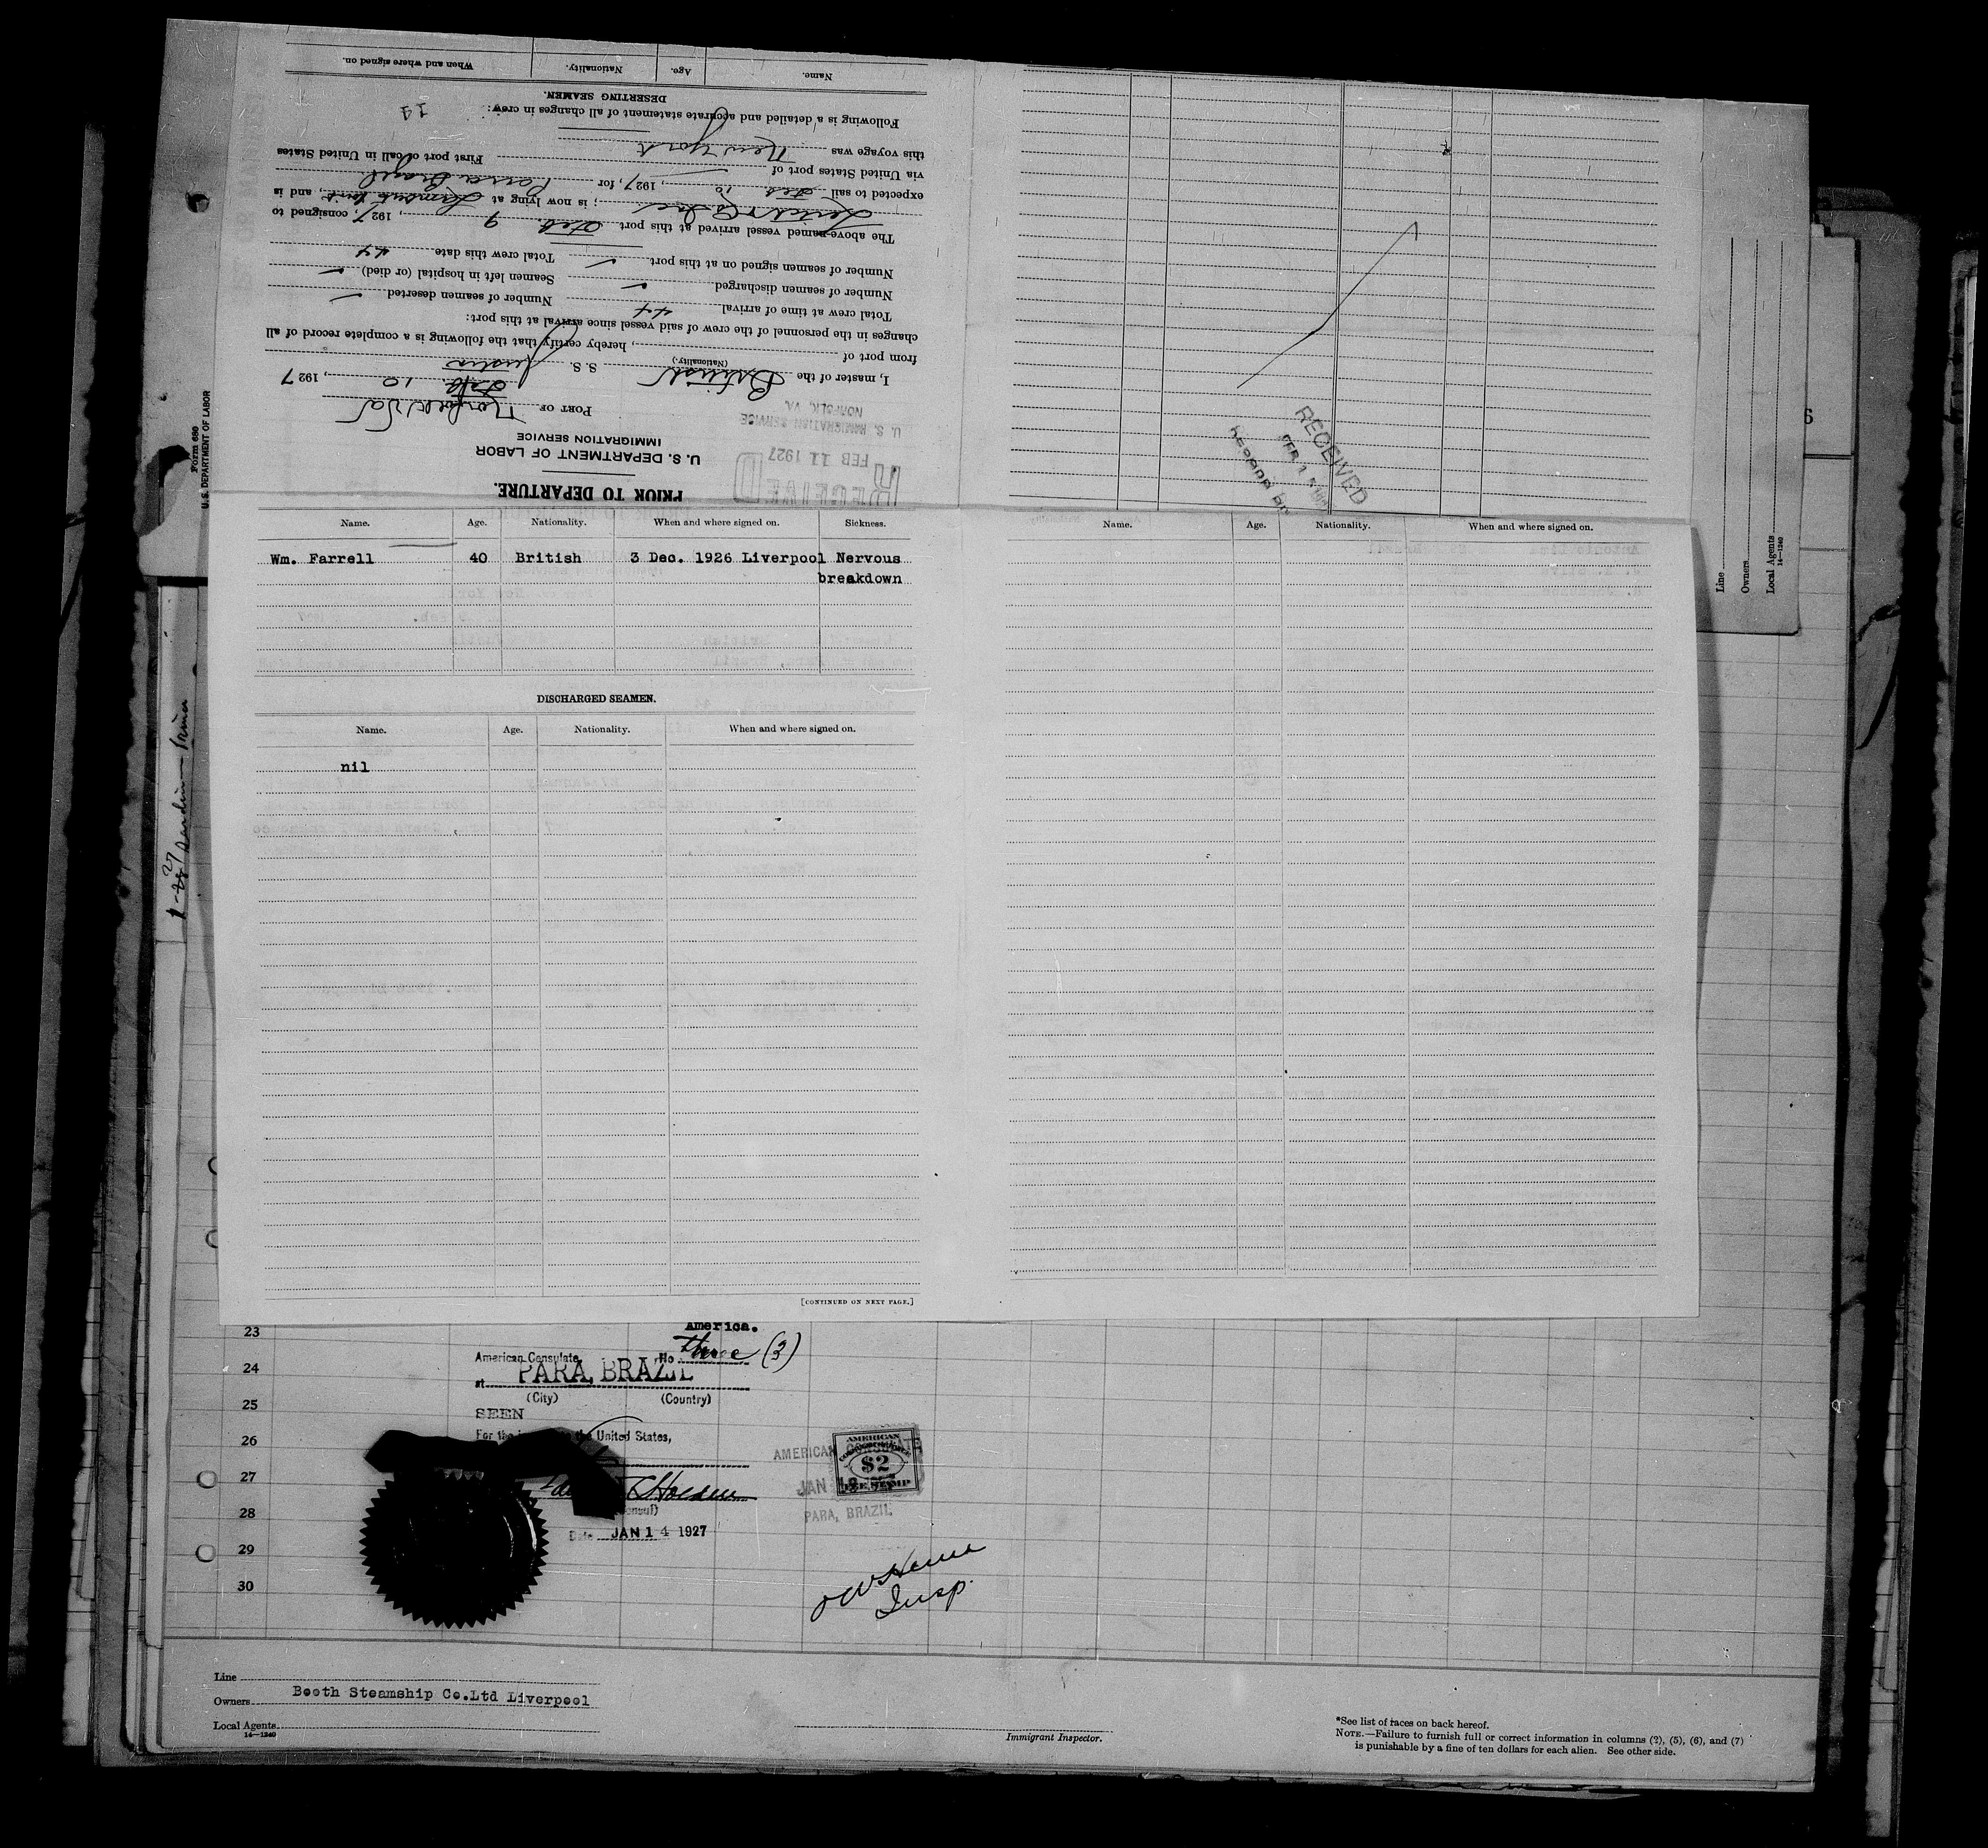 PRIOR TO DEPARTURE.
U. S. DEPARTMENT OF LABOR
IMMIGRATION SERVICE
RECEIVED
FEB 11 1927
U. S. IMMIGRATION SERVICE
NORFOLK, VA.
Form 680
U. S. DEPARTMENT OF LABOR
PORT OF Norfolk Va
Feb 10, 1927
I, master of the British S. S.
(Nationality.)
from port of , hereby certify that the following is a complete record of all
changes in the personnel of the crew of said vessel since arrival at this port:
Total crew at time of arrival 44 Number of seamen deserted
Number of seamen discharged Seamen left in hospital (or died)
Number of seamen signed on at this port. Total crew this date 44
The above-named vessel arrived at this port Feb. 9, 1927, consigned to
; is now lying at , and is
expected to sail Feb 10, 1927, for Para Brazil
via United States port of
this voyage was New York First port of call in United States
Following is a detailed and accurate statement of all changes in crew:
DESERTING SEAMEN.
Name. Age. Nationality. When and where signed on.
RECEIVED
Name. Age. Nationality. When and where signed on. Sickness.
Wm. Farrell 40 British 3 Dec. 1926 Liverpool Nervous
breakdown
DISCHARGED SEAMEN.
Name. Age. Nationality. When and where signed on.
nil
[CONTINUED ON NEXT PAGE.]
Name. Age. Nationality. When and where signed on.
Line
Owners
Local Agents
14—1240
6
23
24
25
26
27
28
29
30
America.
American Consulate No. three (3)
at PARA, BRAZIL
(City) (Country)
SEEN
For the United States,
Holden
Date JAN 14 1927
AMERICAN CONSULATE
PARA, BRAZIL
AMERICAN
$2
FEE STAMP
Insp.
Line
Owners Booth Steamship Co.Ltd Liverpool
Local Agents
14—1240
Immigrant Inspector.
*See list of races on back hereof.
NOTE.—Failure to furnish full or correct information in columns (2), (5), (6), and (7)
is punishable by a fine of ten dollars for each alien. See other side.